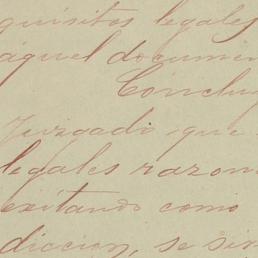 quisitos legales
aquel documen
Concluy
Juzgado que
legales razon
exitando como
diccion, se sir